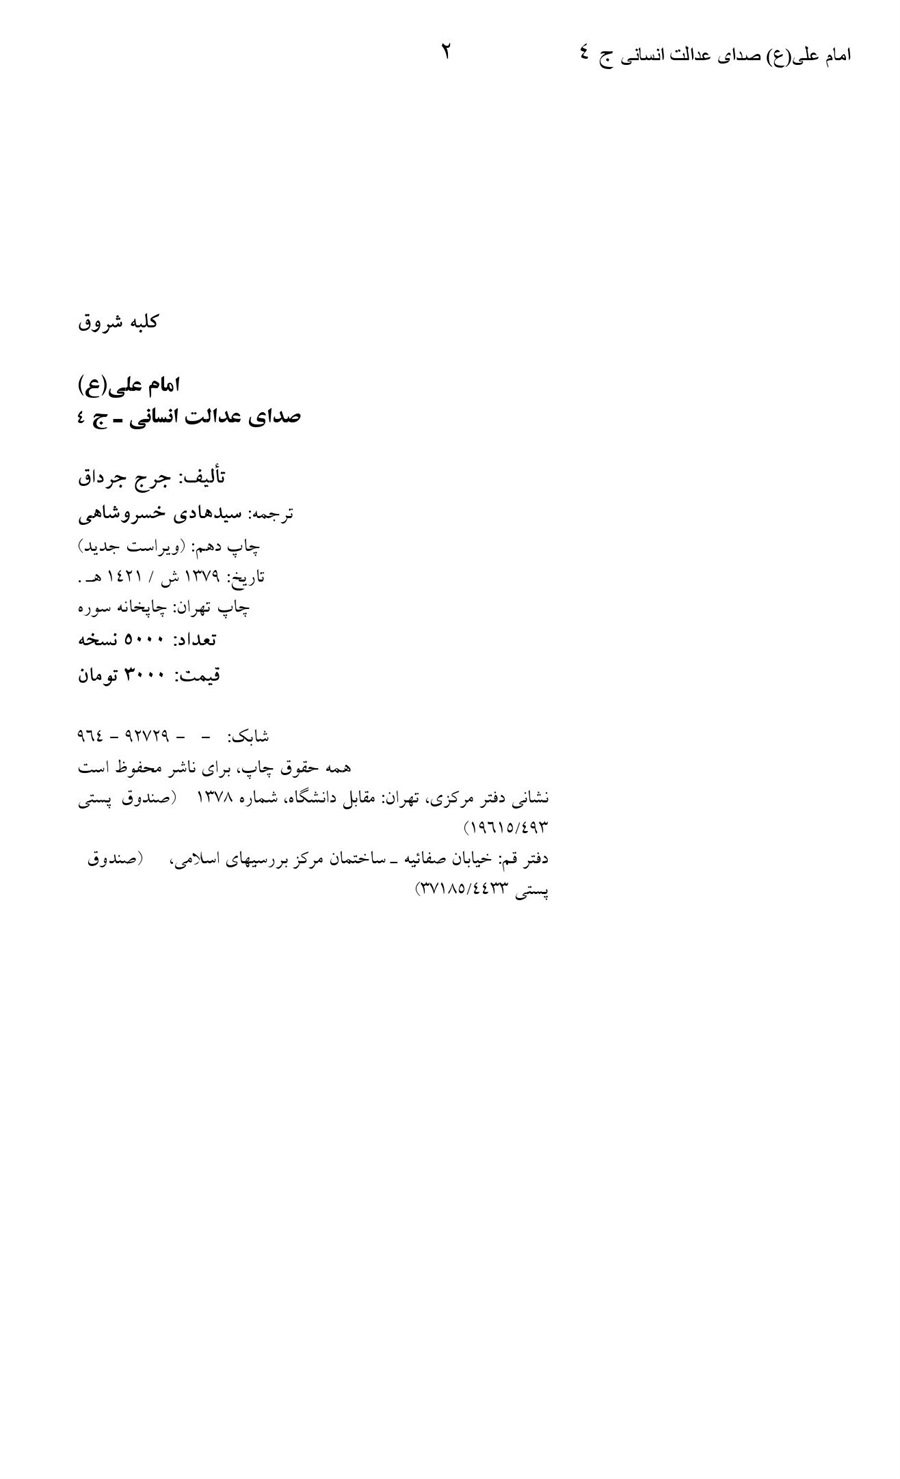 امام علی(ع) صدای عدالت انسانی ج ٤ ٢
کلبه شروق
امام علی(ع)
صدای عدالت انسانی ـ ج ٤
تألیف: جرج جرداق
ترجمه: سیدهادی خسروشاهی
چاپ دهم: (ویراست جدید)
تاریخ: ١٣٧٩ ش / ١٤٢١ هـ .
چاپ تهران: چاپخانه سوره
تعداد: ٥٠٠٠ نسخه
قیمت: ٣٠٠٠ تومان
شابک: - - ٩٢٧٢٩ - ٩٦٤
همه حقوق چاپ، برای ناشر محفوظ است
نشانی دفتر مرکزی، تهران: مقابل دانشگاه، شماره ١٣٧٨ (صندوق پستی
١٩٦١٥/٤٩٣)
دفتر قم: خیابان صفائیه ـ ساختمان مرکز بررسیهای اسلامی، (صندوق
پستی ٣٧١٨٥/٤٤٣٣)